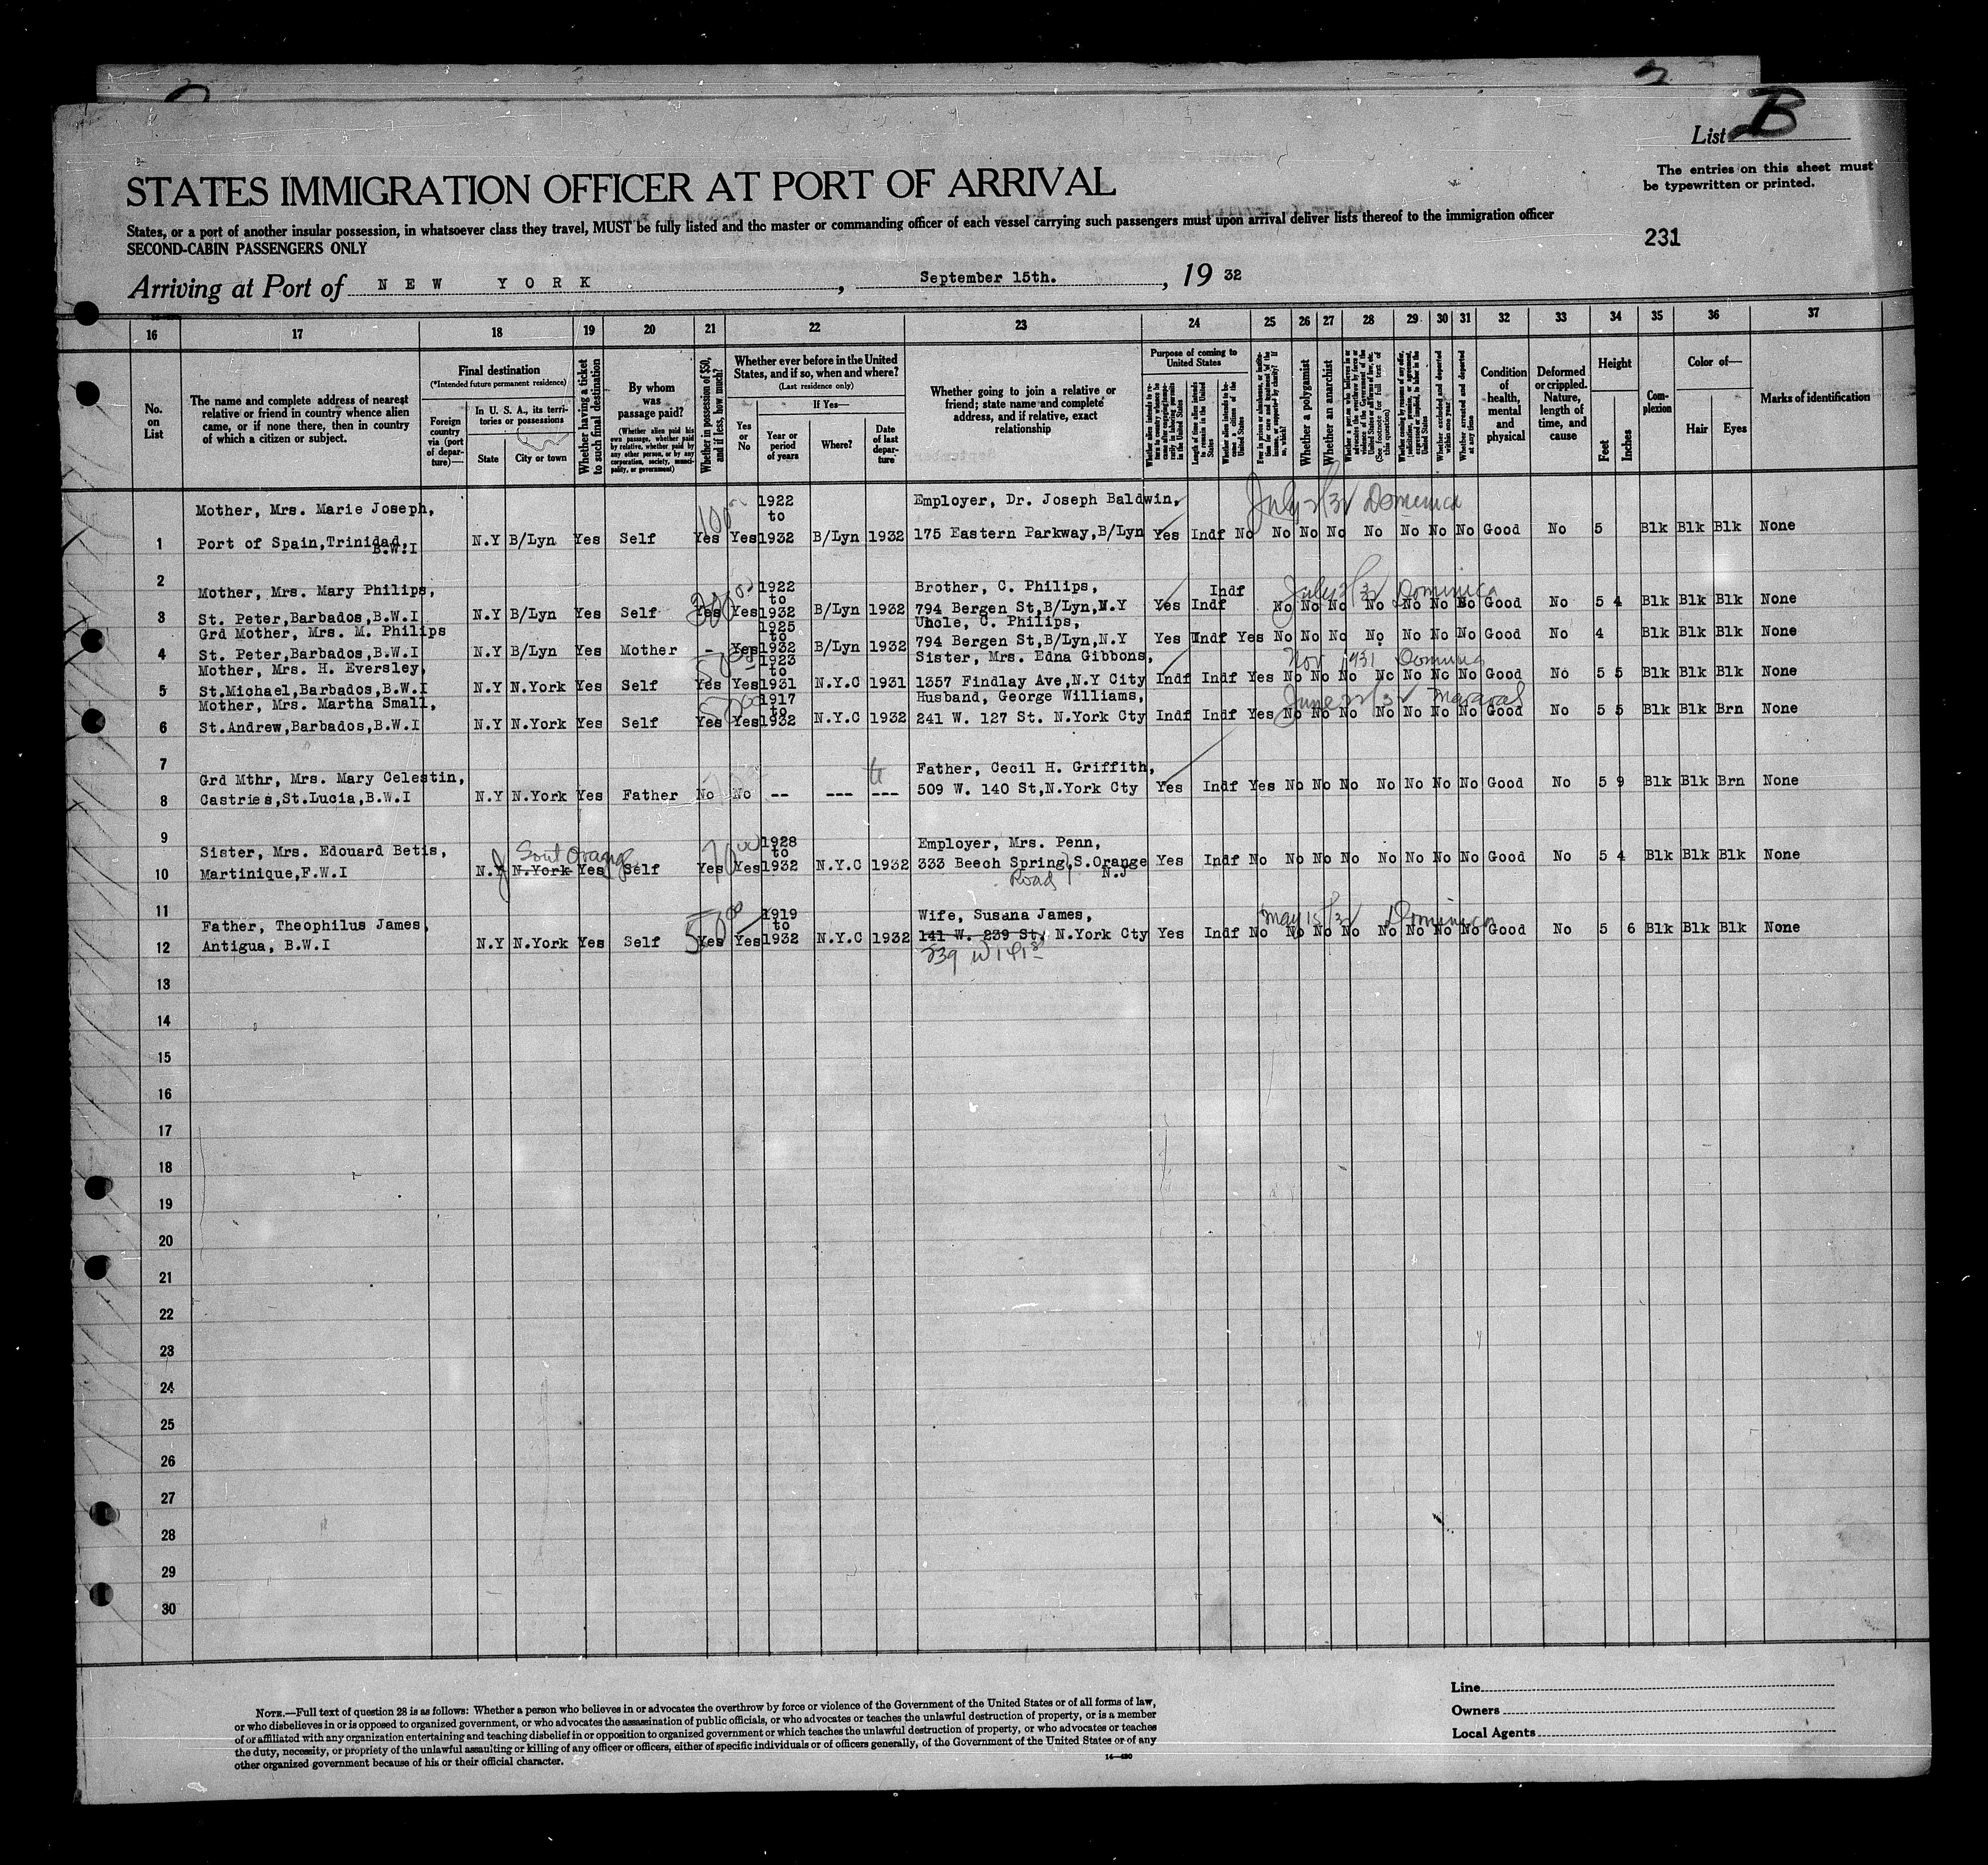 List B
The entries on this sheet must
be typewritten or printed.
STATES IMMIGRATION OFFICER AT PORT OF ARRIVAL
States, or a port of another insular possession, in whatsoever class they travel, MUST be fully listed and the master or commanding officer of each vessel carrying such passengers must upon arrival deliver lists thereof to the immigration officer
SECOND-CABIN PASSENGERS ONLY
231
Arriving at Port of NEW YORK, September 15th., 19 32
16 17 18 19 20 21 22 23 24 25 26 27 28 29 30 31 32 33 34 35 36 37
No. on List
The name and complete address of nearest relative or friend in country whence alien came, or if none there, then in country of which a citizen or subject.
Final destination
(*Intended future permanent residence)
Foreign country via (port of departure)—
In U. S. A., its territories or possessions
State
City or town
Whether having a ticket to such final destination
By whom was passage paid?
(Whether alien paid his own passage, whether paid by relative, whether paid by any other person, or by any corporation, society, municipality, or government)
Whether in possession of $50, and if less, how much?
Whether ever before in the United States, and if so, when and where?
(Last residence only)
Yes or No
If Yes—
Year or period of years
Where?
Date of last departure
Whether going to join a relative or friend; state name and complete address, and if relative, exact relationship
Purpose of coming to United States
Length of time alien intends to remain in the United States
Whether alien intends to become a citizen of the United States
Whether a polygamist
Whether an anarchist
Whether excluded and deported within one year
Whether arrested and deported at any time
Condition of health, mental and physical
Deformed or crippled. Nature, length of time, and cause
Height
Feet
Inches
Complexion
Color of—
Hair
Eyes
Marks of identification
Mother, Mrs. Marie Joseph, 100 1922 to Employer, Dr. Joseph Baldwin, July 2/32 Dominica
1 Port of Spain,Trinidad, B.W.I N.Y B/Lyn Yes Self Yes Yes 1932 B/Lyn 1932 175 Eastern Parkway,B/Lyn Yes Indf No No No No No No No No Good No 5 Blk Blk Blk None
2
Mother, Mrs. Mary Philips, 1922 to Brother, C. Philips, Indf July 2/32 Dominica
3 St. Peter,Barbados,B.W.I N.Y B/Lyn Yes Self Yes Yes 1932 B/Lyn 1932 794 Bergen St,B/Lyn,N.Y Yes Indf No No No No No No No Good No 5 4 Blk Blk Blk None
Grd Mother, Mrs. M. Philips 1925 to Uncle, C. Philips,
4 St. Peter,Barbados,B.W.I N.Y B/Lyn Yes Mother - Yes 1932 B/Lyn 1932 794 Bergen St,B/Lyn,N.Y Yes Indf Yes No No No No No No No Good No 4 Blk Blk Blk None
Mother, Mrs. H. Eversley, 50 1923 to Sister, Mrs. Edna Gibbons, Nov 1931 Dominica
5 St.Michael,Barbados,B.W.I N.Y N.York Yes Self Yes Yes 1931 N.Y.C 1931 1357 Findlay Ave,N.Y City Indf Indf Yes No No No No No No No Good No 5 5 Blk Blk Blk None
Mother, Mrs. Martha Small, 50 1917 to Husband, George Williams, June 22/32
6 St.Andrew,Barbados,B.W.I N.Y N.York Yes Self Yes Yes 1932 N.Y.C 1932 241 W. 127 St. N.York Cty Indf Indf Yes No No No No No No No Good No 5 5 Blk Blk Brn None
7
Grd Mthr, Mrs. Mary Celestin, Father, Cecil H. Griffith,
8 Castries,St.Lucia,B.W.I N.Y N.York Yes Father No No -- --- --- 509 W. 140 St,N.York Cty Yes Indf Yes No No No No No No No Good No 5 9 Blk Blk Brn None
9
Sister, Mrs. Edouard Betis, Sout Orange 70 00 1928 to Employer, Mrs. Penn,
10 Martinique,F.W.I N.Y J N.York Yes Self Yes Yes 1932 N.Y.C 1932 333 Beech Spring,S.Orange Yes Indf No No No No No No No No Good No 5 4 Blk Blk Blk None
Road N.J
11
Father, Theophilus James, 50 00 1919 to Wife, Susana James, May 15/32 Dominica
12 Antigua, B.W.I N.Y N.York Yes Self Yes Yes 1932 N.Y.C 1932 141 W. 239 St, N.York Cty Yes Indf No No No No No No No No Good No 5 6 Blk Blk Blk None
239 W 141 st
13
14
15
16
17
18
19
20
21
22
23
24
25
26
27
28
29
30
NOTE.—Full text of question 28 is as follows: Whether a person who believes in or advocates the overthrow by force or violence of the Government of the United States or of all forms of law,
or who disbelieves in or is opposed to organized government, or who advocates the assassination of public officials, or who advocates or teaches the unlawful destruction of property, or is a member
of or affiliated with any organization entertaining and teaching disbelief in or opposition to organized government or which teaches the unlawful destruction of property, or who advocates or teaches
the duty, necessity, or propriety of the unlawful assaulting or killing of any officer or officers, either of specific individuals or of officers generally, of the Government of the United States or of any
other organized government because of his or their official character.
14—430
Line
Owners
Local Agents